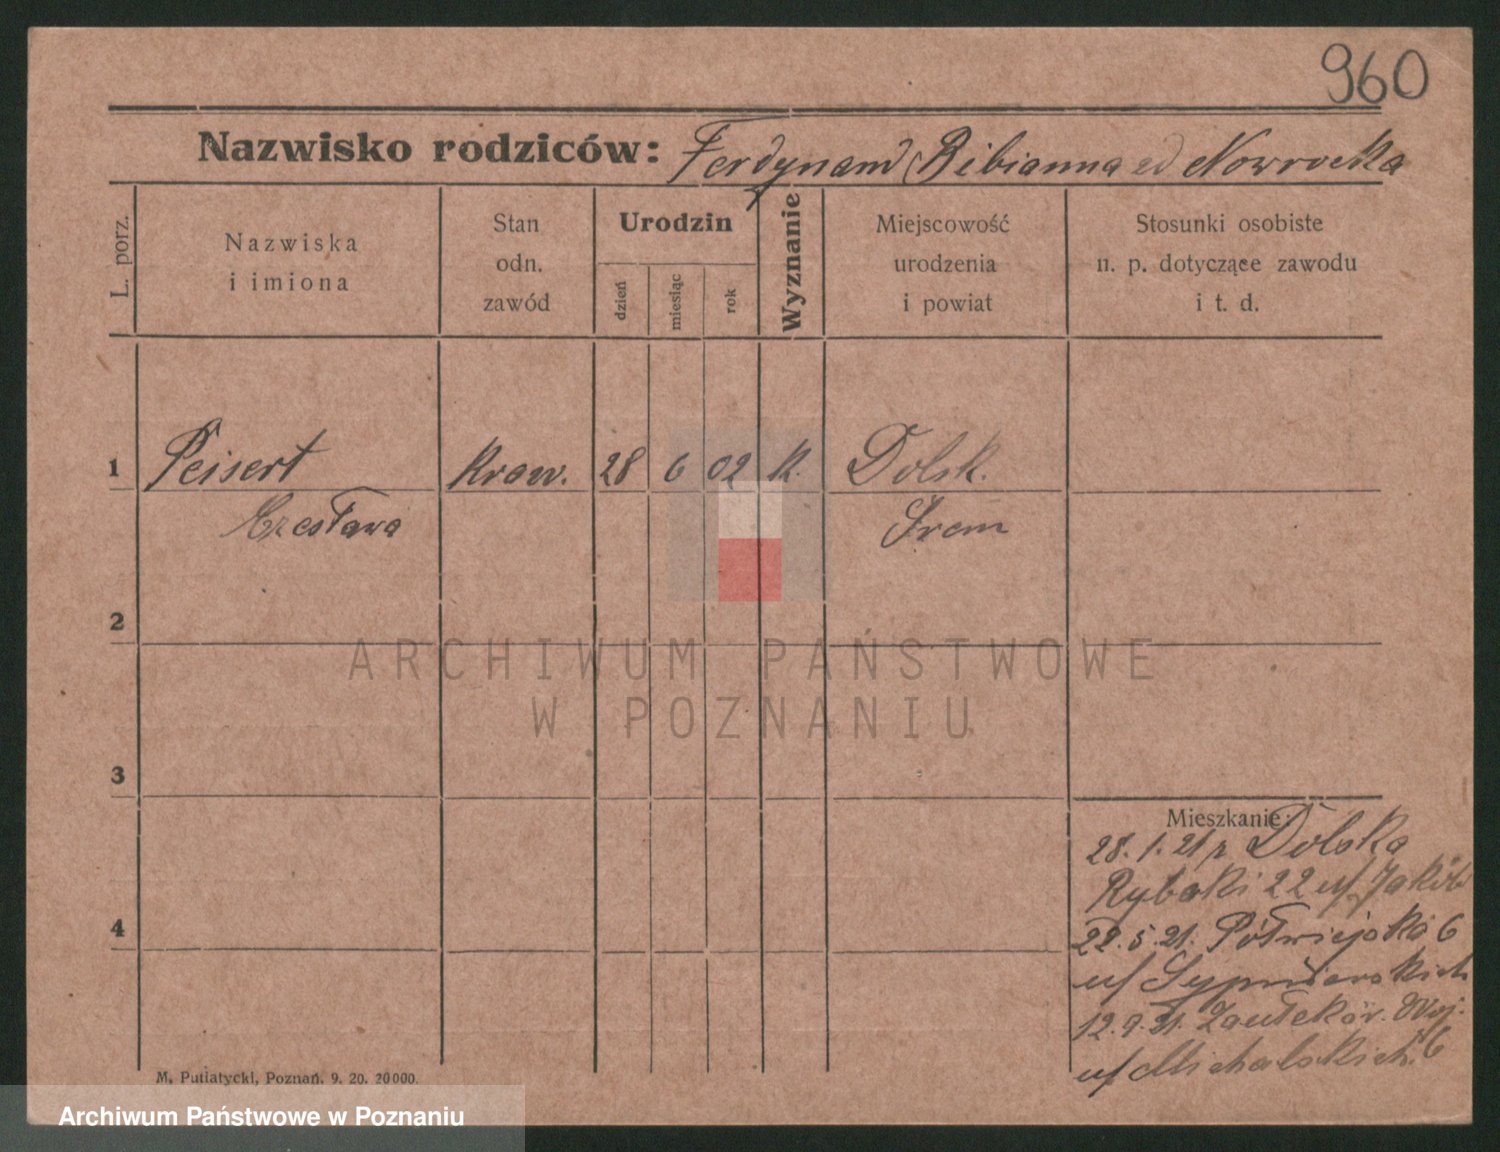 960
Nazwisko rodziców: Ferdynand Bibianna zd Nowrocka
L. porz.
Nazwiska
i imiona
Stan
odn.
zawód
Urodzin
dzień
miesiąc
rok
Wyznanie
Miejscowość
urodzenia
i powiat
Stosunki osobiste
n. p. dotyczące zawodu
i t. d.
1 Peisert Kraw. 28 6 02 K. Dolsk.
Czesława Śrem
2
ARCHIWUM PAŃSTWOWE
W POZNANIU
3
Mieszkanie:
28.1.21 z Dolska
Rybaki 22 u/ Jakób
4
22.5.21. Półwiejska 6
u/
12.9.21. Zaułek 6
u/ Michalskich
M. Putiatycki, Poznań. 9. 20. 20000.
Archiwum Państwowe w Poznaniu